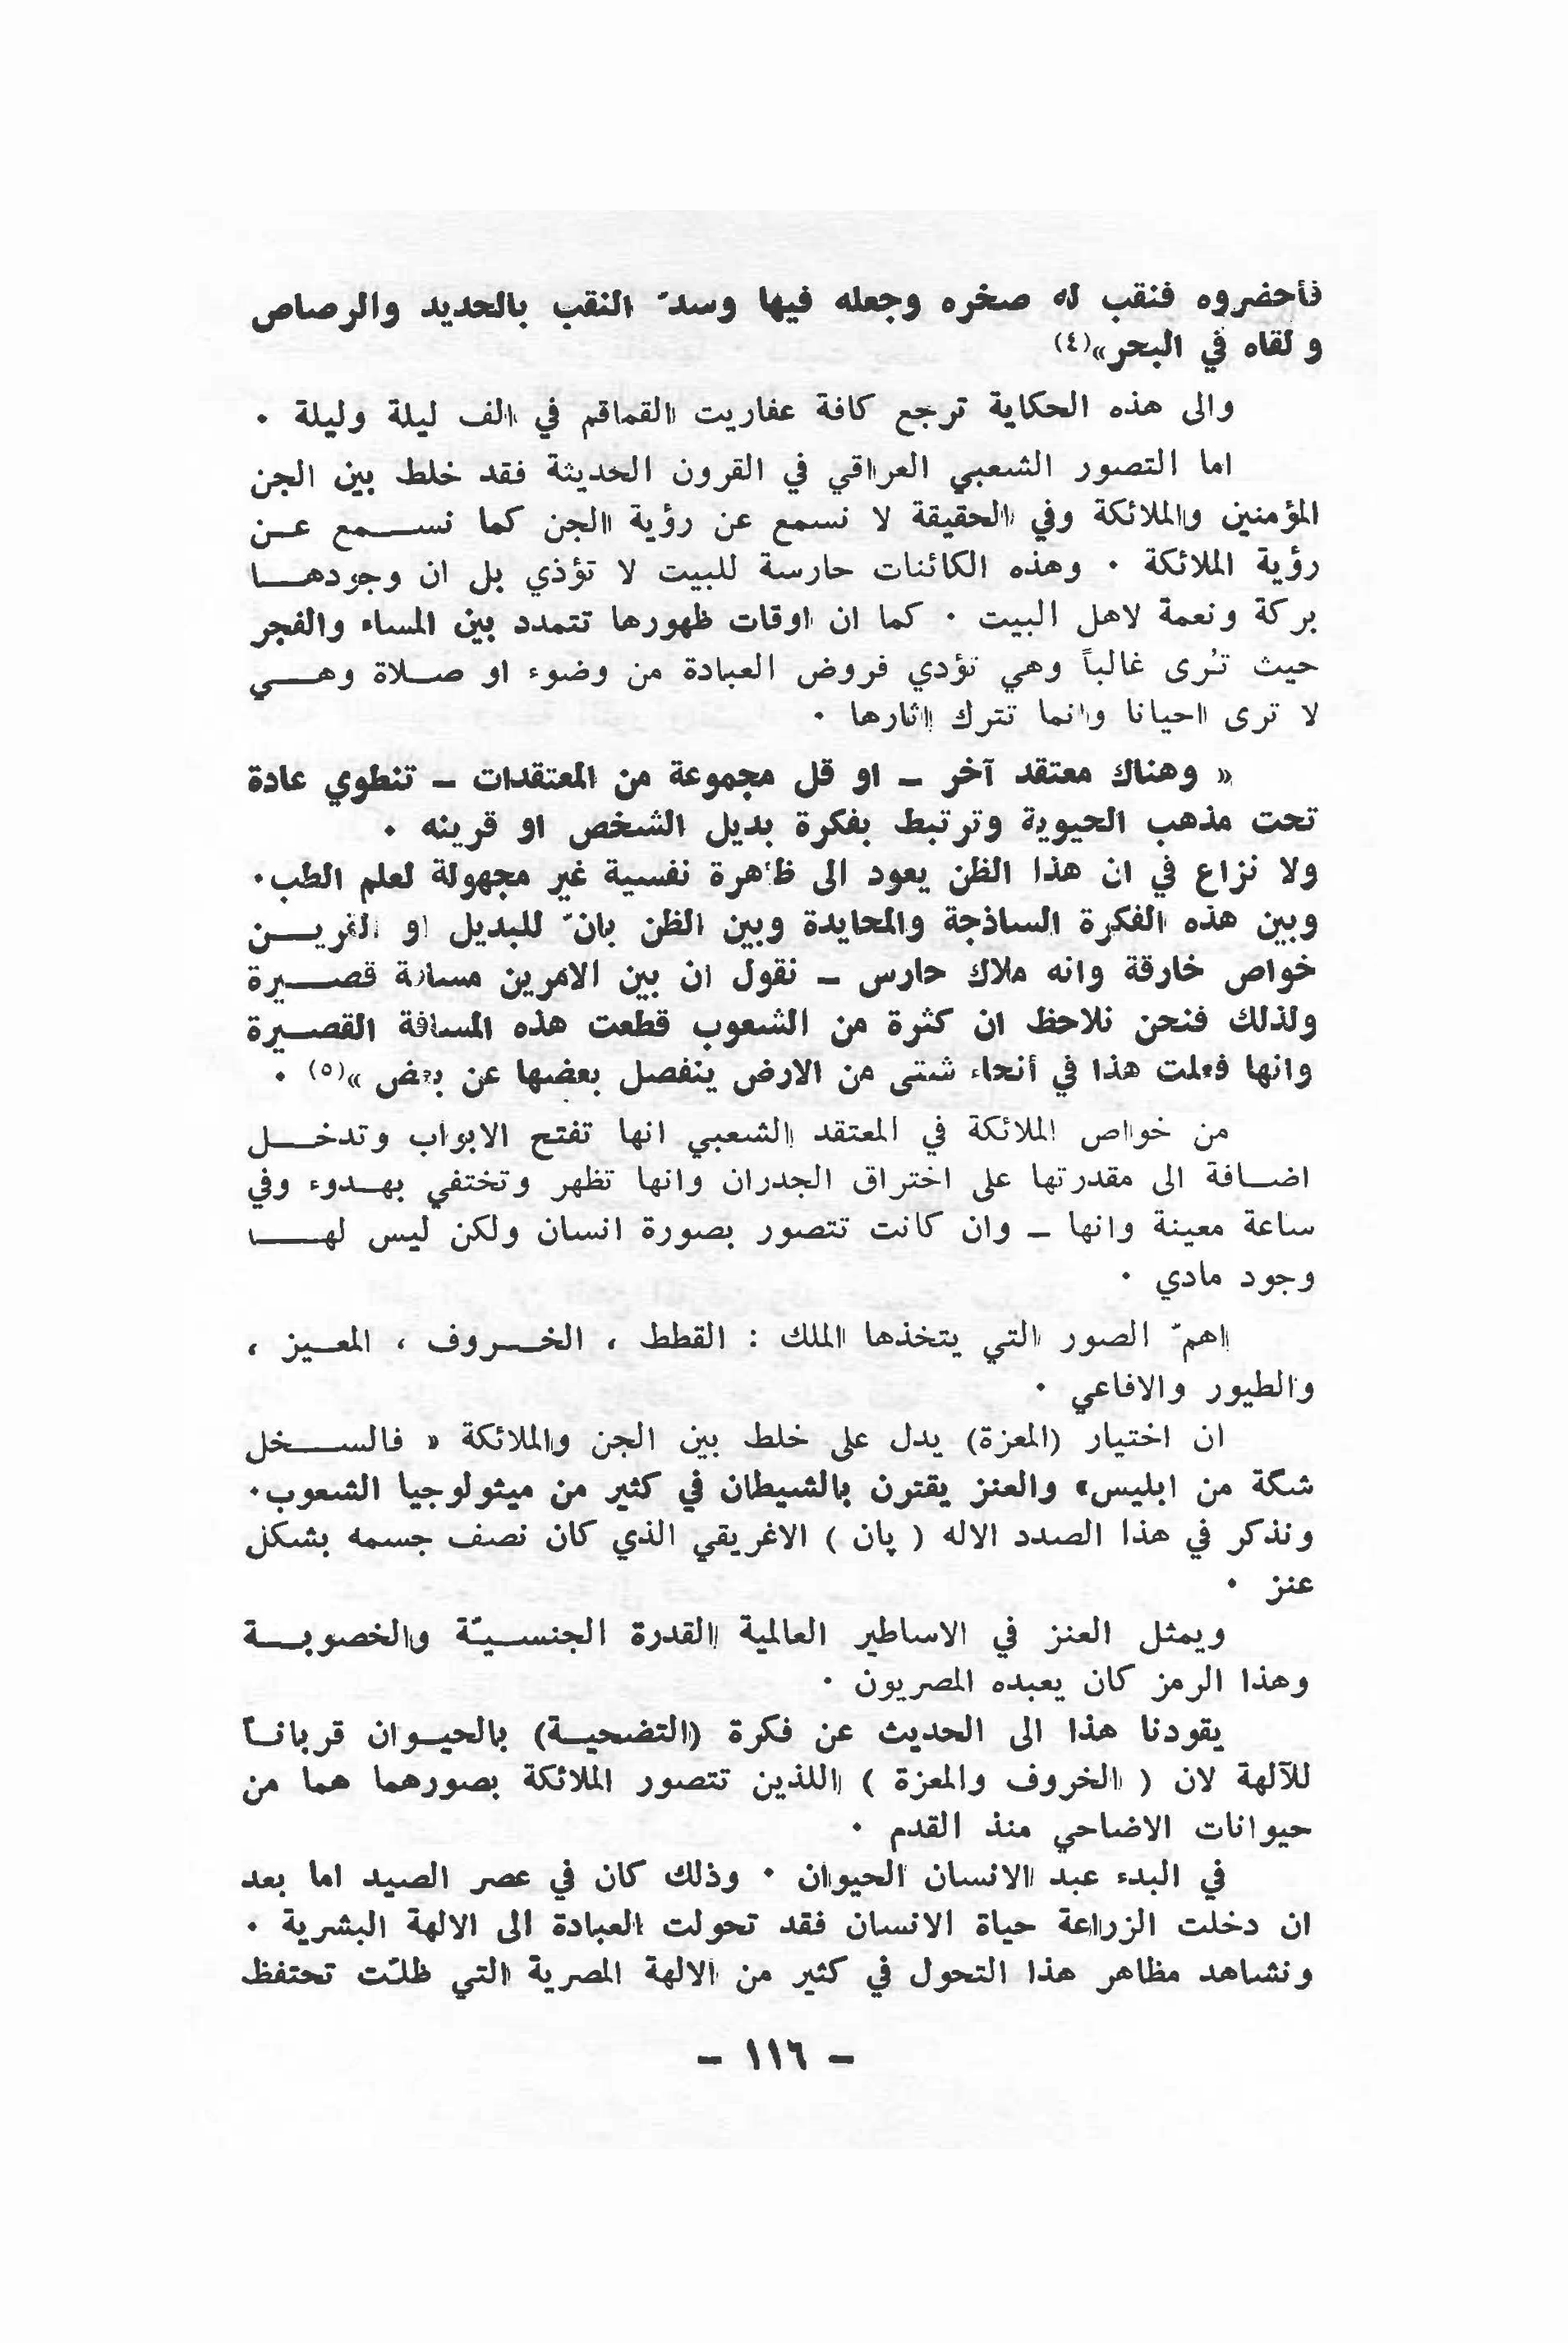 فأحضروه فنقب له صخره وجعله فيها وسدّ النقب بالحديد والرصاص
ولقاه في البحر»(٤)
والى هذه الحكاية ترجع كافة عفاريت القماقم في الف ليلة وليلة ٠
اما التصور الشعبي العراقي في القرون الحديثة فقد خلط بين الجن
المؤمنين والملائكة وفي الحقيقة لا نسمع عن رؤية الجن كما نســـمع عـن
رؤية الملائكة ٠ وهذه الكائنات حارسة للبيت لا تؤذي بل ان وجودهـــا
بركة ونعمة لاهل البيت ٠ كما ان اوقات ظهورها تتمدد بين المساء والفجر
حيث تُرى غالباً وهي تؤدي فروض العبادة من وضوء او صـلاة وهـــي
لا ترى احيانا وانما تترك اثارها ٠
« وهناك معتقد آخر ـ او قل مجموعة من المعتقدات ـ تنطوي عادة
تحت مذهب الحيوية وترتبط بفكرة بديل الشخص او قرينه ٠
ولا نزاع في ان هذا الظن يعود الى ظاهرة نفسية غير مجهولة لعلم الطب٠
وبين هذه الفكرة الساذجة والمحايدة وبين الظن بانّ للبديل او القريـــن
خواص خارقة وانه ملاك حارس ـ نقول ان بين الامرين مسافة قصـــيرة
ولذلك فنحن نلاحظ ان كثرة من الشعوب قطعت هذه المسافة القصـيرة
وانها فعلت هذا في أنحاء شتى من الارض ينفصل بعضها عن بعض »(٥) ٠
من خواص الملائكة في المعتقد الشعبي انها تفتح الابواب وتدخـــل
اضـافة الى مقدرتها على اختراق الجدران وانها تظهر وتختفي بهـدوء وفي
ساعة معينة وانها ـ وان كانت تتصور بصورة انسان ولكن ليس لهـــا
وجود مادي ٠
اهمّ الصور التي يتخذها الملك : القطط ، الخـــروف ، المعــيز ،
والطيور والافاعي ٠
ان اختيار (المعزة) يدل على خلط بين الجن والملائكة « فالســـخل
شكة من ابليس» والعنز يقترن بالشيطان في كثير من ميثولوجيا الشعوب٠
ونذكر في هذا الصدد الاله ( پان ) الاغريقي الذي كان نصف جسمه بشكل
عنز ٠
ويمثل العنز في الاساطير العالمية القدرة الجنســيّة والخصوبـــة
وهذا الرمز كان يعبده المصريون ٠
يقودنا هذا الى الحديث عن فكرة (التضحيـة) بالحيـوان قربانـاً
للآلهة لان ( الخروف والمعزة ) اللذين تتصور الملائكة بصورهما هما من
حيوانات الاضاحي منذ القدم ٠
في البدء عبد الانسان الحيوان ٠ وذلك كان في عصر الصيد اما بعد
ان دخلت الزراعة حياة الانسان فقد تحولت العبادة الى الالهة البشرية ٠
ونشاهد مظاهر هذا التحول في كثير من الالهة المصرية التي ظلّت تحتفظ
ـ ١١٦ ـ